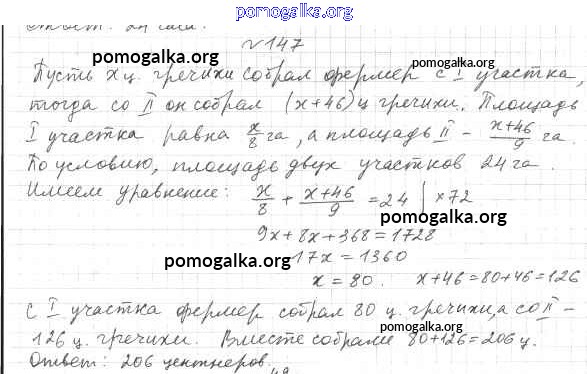 pomogalka.org
Ответ: 24 часа.
pomogalka.org pomogalka.org
№147
Пусть x ц. гречихи собрал фермер с I участка,
тогда со II он собрал (x+46) ц гречихи. Площадь
I участка равна x/8 га, а площадь II – x+46/9 га.
По условию, площадь двух участков 24 га.
Имеем уравнение: x/8 + x+46/9 = 24 | ×72
pomogalka.org
9x+8x+368=1728
pomogalka.org 17x=1360
x=80. x+46=80+46=126
С I участка фермер собрал 80 ц. гречихи, а со II –
pomogalka.org
126 ц. гречихи. Вместе собрали 80+126=206 ц.
Ответ: 206 центнеров.
pomogalka.org